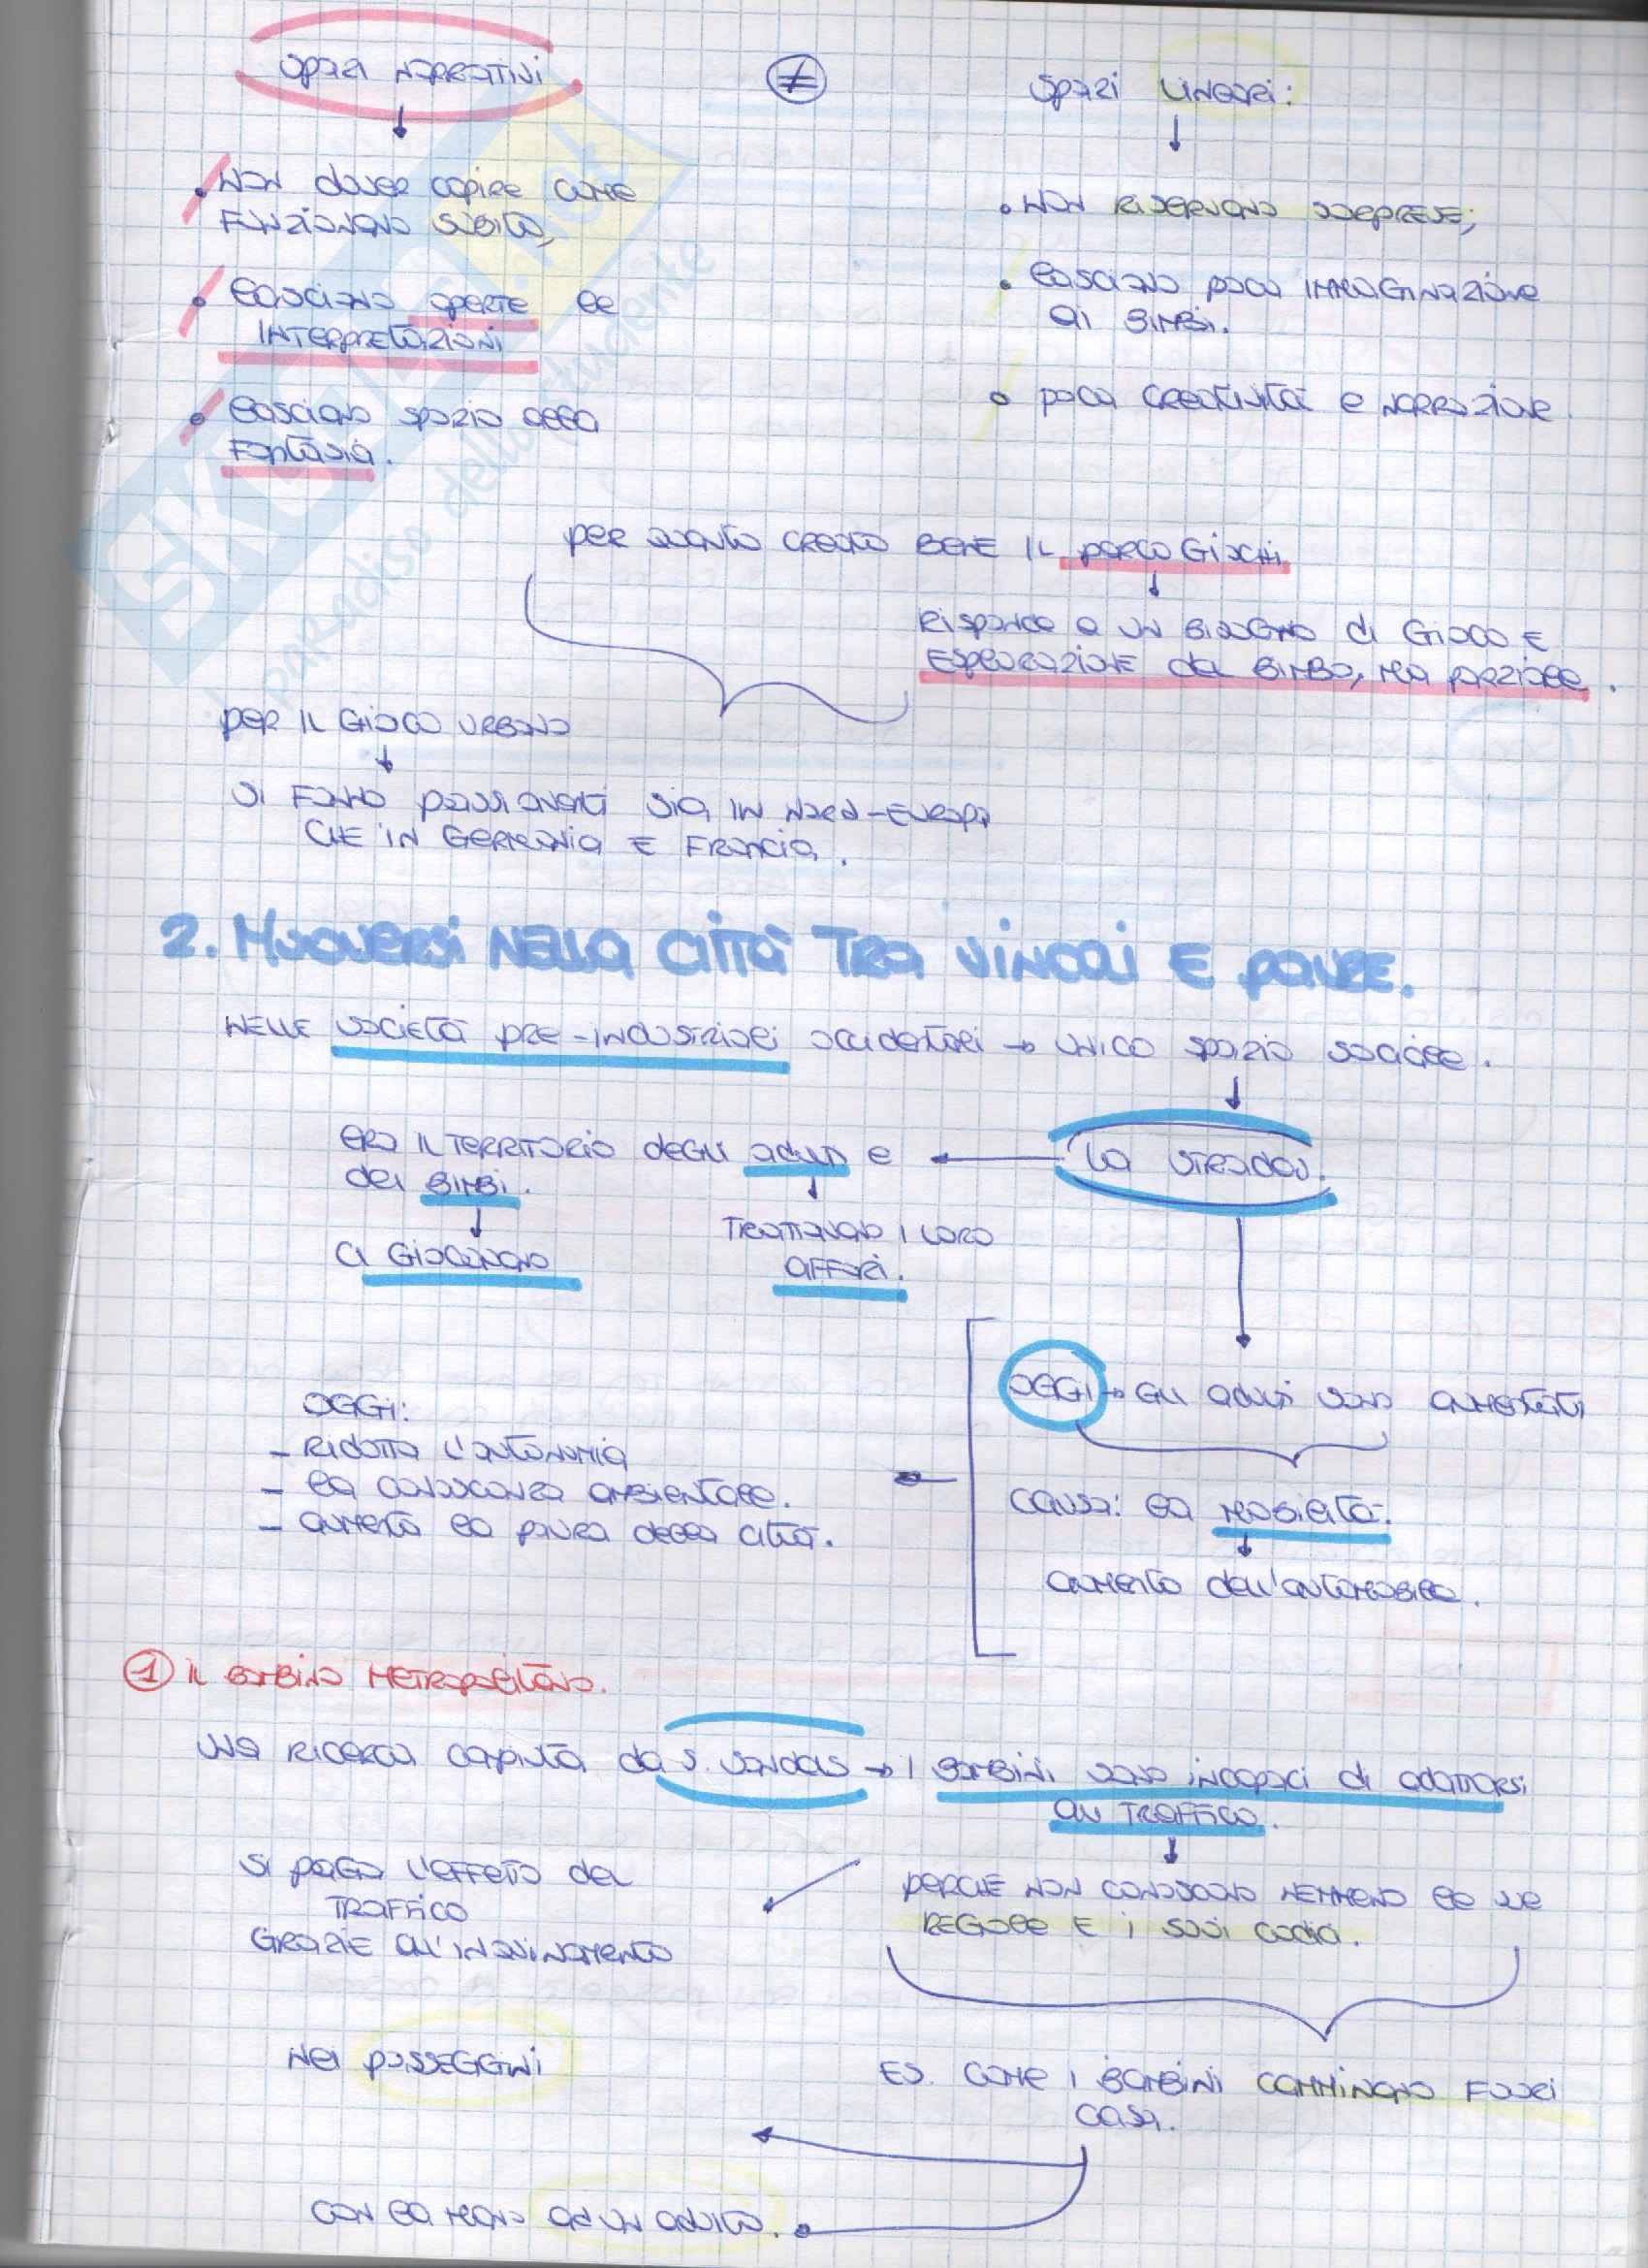 SPAZI NARRATIVI
≠
SPAZI LINEARI:
• NON dover capire come
FUNZIONANO SUBITO,
• lasciano aperte le
INTERPRETAZIONI
• lasciano spazio alla
Fantasia.
• NON RISERVANO SORPRESE;
• lasciano poca IMMAGINAZIONE
ai BIMBI.
• poca CREATIVITÀ e NARRAZIONE.
per quanto creato BENE IL parco GIOCHI
↓
Risponde a un BISOGNO di GIOCO E
ESPLORAZIONE del BIMBO, MA parziale.
per IL GIOCO URBANO
↓
SI FANNO passi avanti sia IN NORD-EUROPA
CHE IN GERMANIA E FRANCIA.
2. MUOVERSI NELLA CITTÀ TRA VINCOLI E PAURE.
NELLE società pre-industriali occidentali → UNICO spazio sociale.
la strada.
era IL TERRITORIO degli adulti e
dei BIMBI.
CI GIOCAVANO
TRATTAVANO I LORO
AFFARI.
OGGI → GLI adulti sono aumentati
causa: la mobilità.
aumento dell'automobile.
OGGI:
- RIDOTTA L'autonomia
- la conoscenza ambientale.
- aumenta la paura della città.
① Il BAMBINO METROPOLITANO.
una ricerca compiuta da S. → I BAMBINI sono incapaci di adattarsi
al TRAFFICO.
perché non conoscono nemmeno le sue
REGOLE E I suoi codici.
SI paga l'effetto del
TRAFFICO
GRAZIE all'INQUINAMENTO
ES. come i BAMBINI camminano FUORI
casa.
nei passeggini
con la mano ad un adulto.
SKUOLA.net
il paradiso dello studente